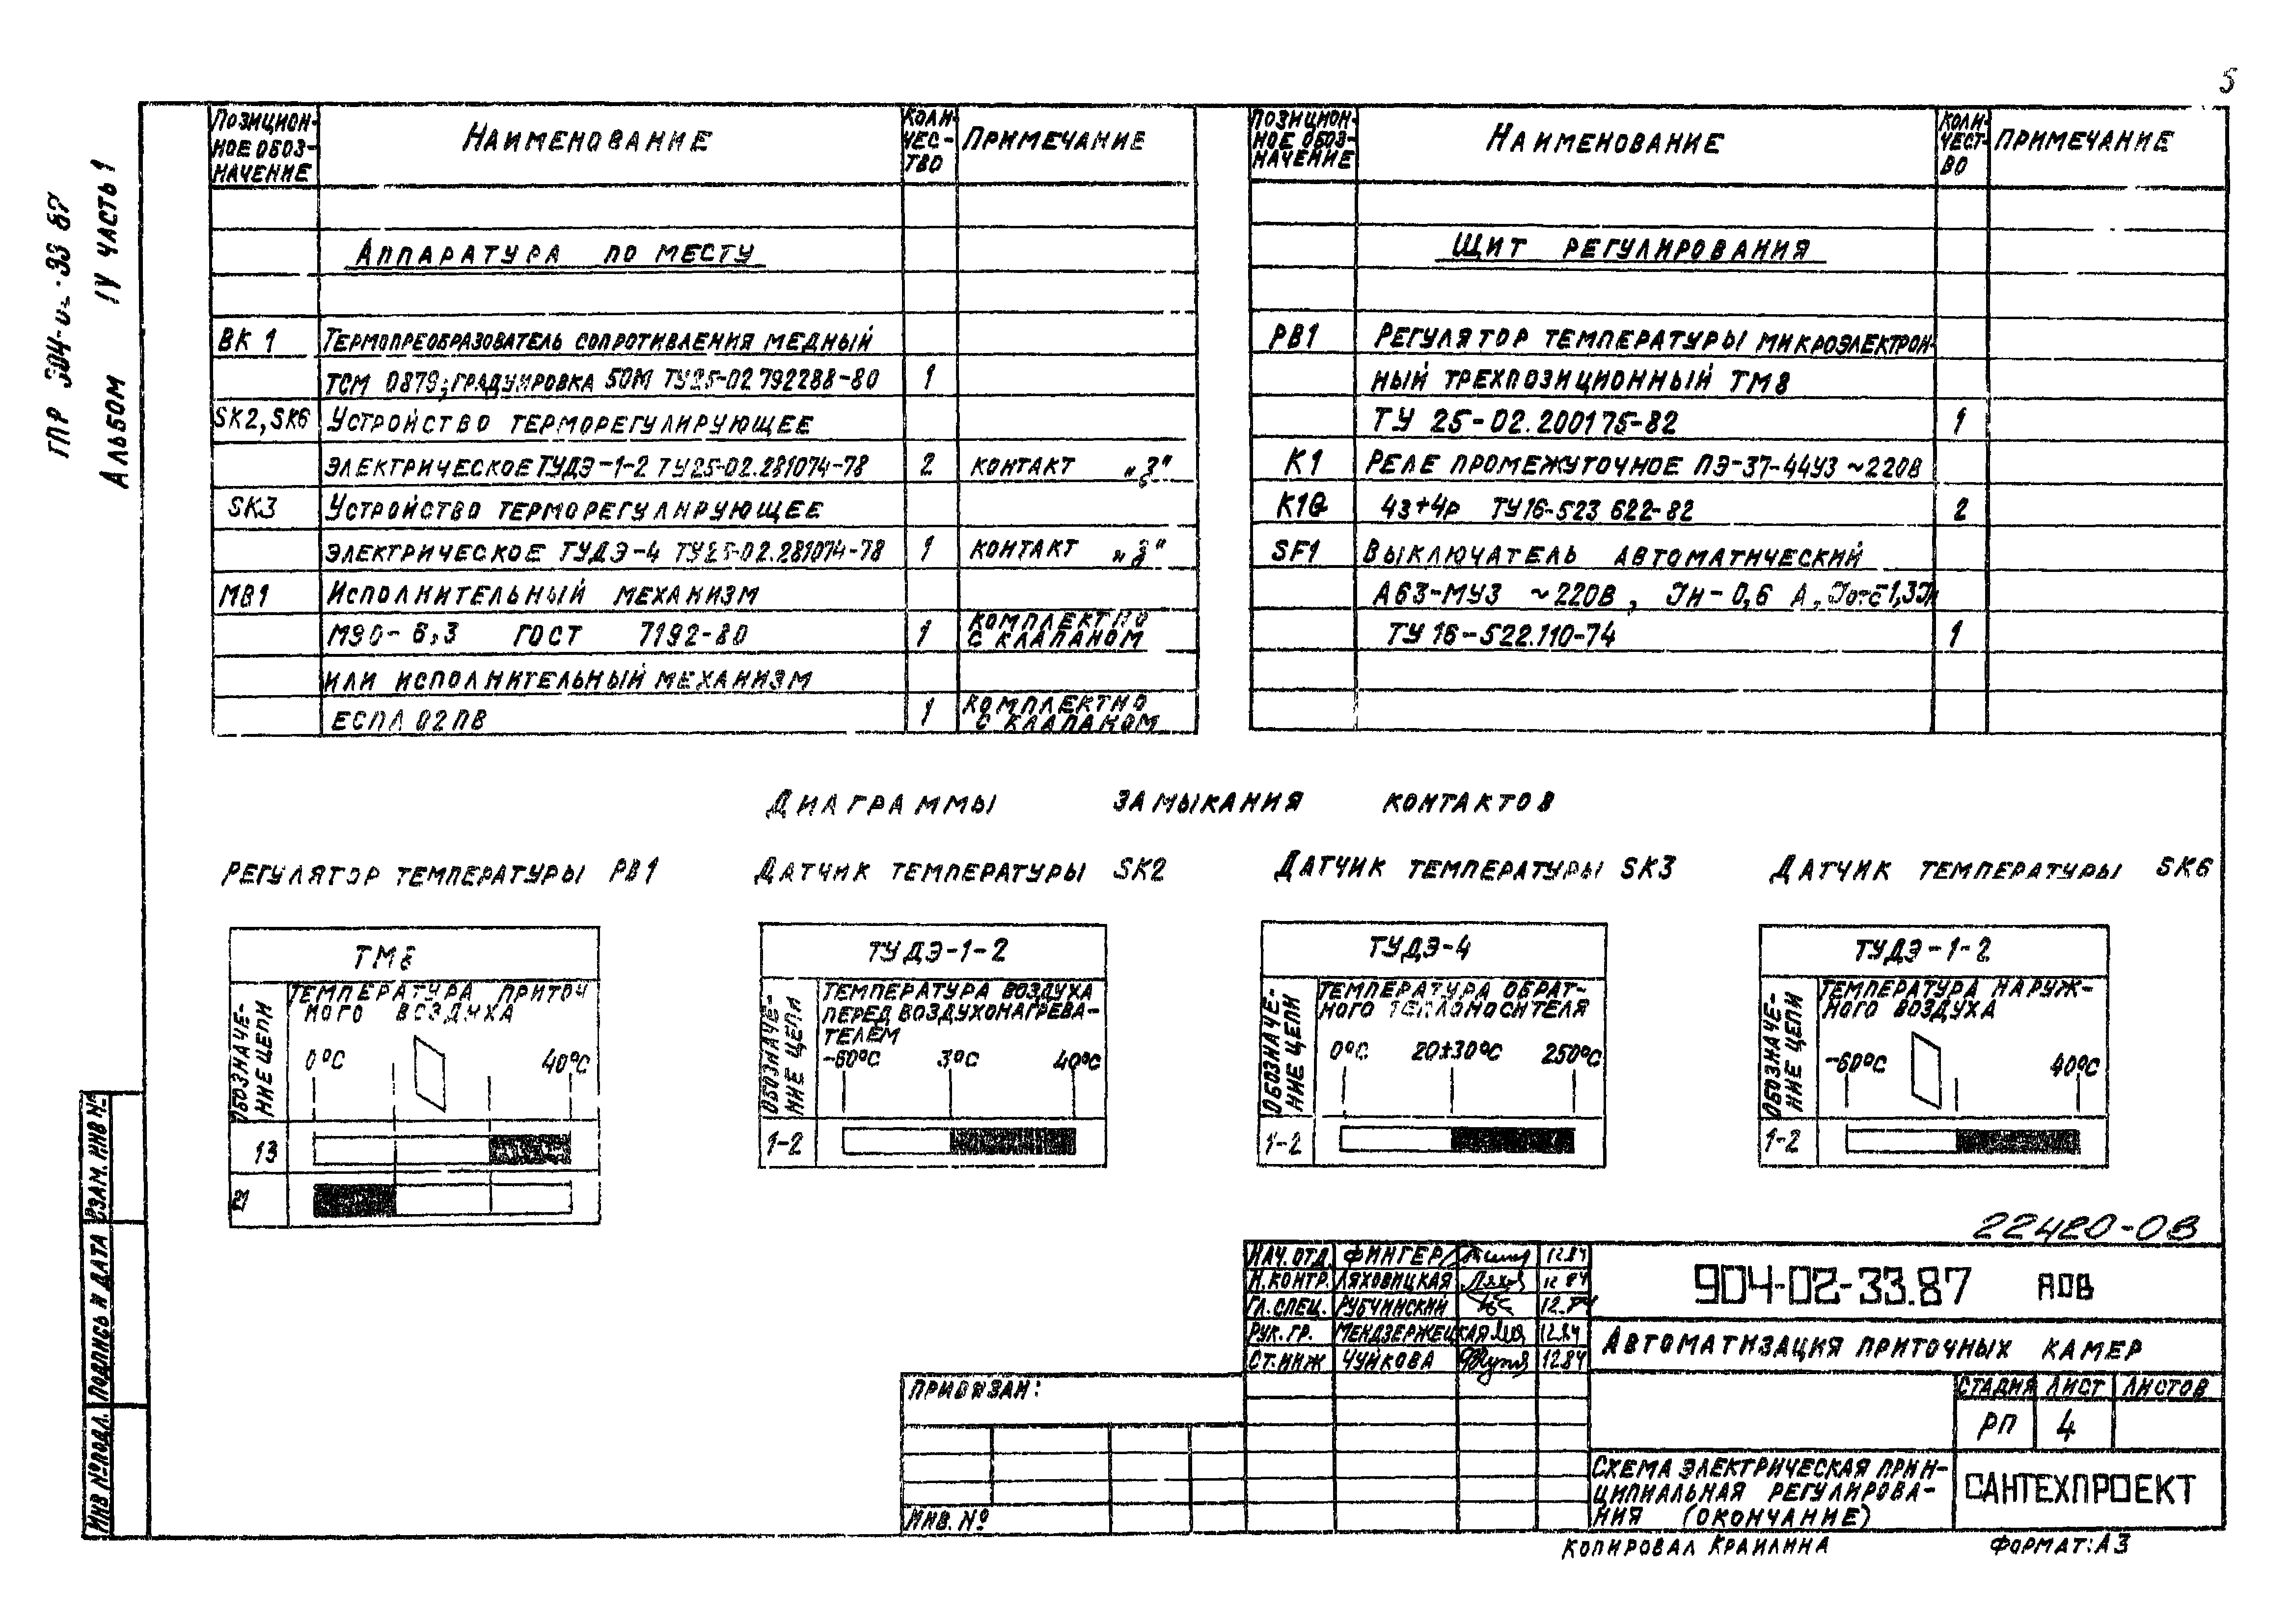 5
ТПР 904-02-33 87
Альбом IV часть 1
Позицион-
ное обоз-
начение
Наименование
Коли-
чес-
тво
Примечание
Аппаратура по месту
ВК 1 Термопреобразователь сопротивления медный
ТСМ 0879; градуировка 50М ТУ25-02 792288-80 1
SK2, SK6 Устройство терморегулирующее
электрическое ТУДЭ-1-2 ТУ25-02.281074-78 2 контакт „3“
SK3 Устройство терморегулирующее
электрическое ТУДЭ-4 ТУ25-02.281074-78 1 контакт „3“
МВ1 Исполнительный механизм
МЭО-6,3 ГОСТ 7192-80 1 комплектно
с клапаном
или исполнительный механизм
ЕСПА 02ПВ 1 комплектно
с клапаном
Позицион-
ное обоз-
начение
Наименование
Коли-
чест-
во
Примечание
Щит регулирования
РВ1 Регулятор температуры микроэлектрон-
ный трехпозиционный ТМ8
ТУ 25-02.200175-82 1
К1 Реле промежуточное ПЭ-37-44У3 ~220В
К1Q 4з+4р ТУ16-523 622-82 2
SF1 Выключатель автоматический
А63-МУ3 ~220В, Jн-0,6 А,
ТУ 16-522.110-74 1
Диаграммы замыкания контактов
Регулятор температуры РВ1
ТМ8
Обозначе-
ние цепи
Температура приточ
ного воздуха
0°С 40°С
13
21
Датчик температуры SK2
ТУДЭ-1-2
Обозначе-
ние цепи
Температура воздуха
перед воздухонагрева-
телем
-60°С 3°С 40°С
1-2
Датчик температуры SK3
ТУДЭ-4
Обозначе-
ние цепи
Температура обрат-
ного теплоносителя
0°С 20±30°С 250°С
1-2
Датчик температуры SK6
ТУДЭ-1-2
Обозначе-
ние цепи
Температура наруж-
ного воздуха
-60°С 40°С
1-2
22420-08
Нач. отд. Фингер 12.84
Н.контр. Ляховицкая 12 84
Гл. спец. Рубчинский 12.84
Рук. гр. Мендзержецкая 12.84
Ст. инж Чуйкова 12.84
904-02-33.87 АОВ
Автоматизация приточных камер
Стадия Лист Листов
РП 4
Схема электрическая прин-
ципиальная регулирова-
ния (окончание)
САНТЕХПРОЕКТ
Привязан:
Инв. №
Взам. инв №
Подпись и дата
Инв №подл.
Копировал Краилина
Формат: А3